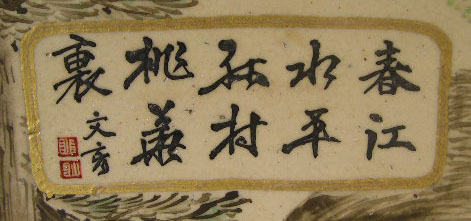 春江
水平
孤村
桃華
裏
文